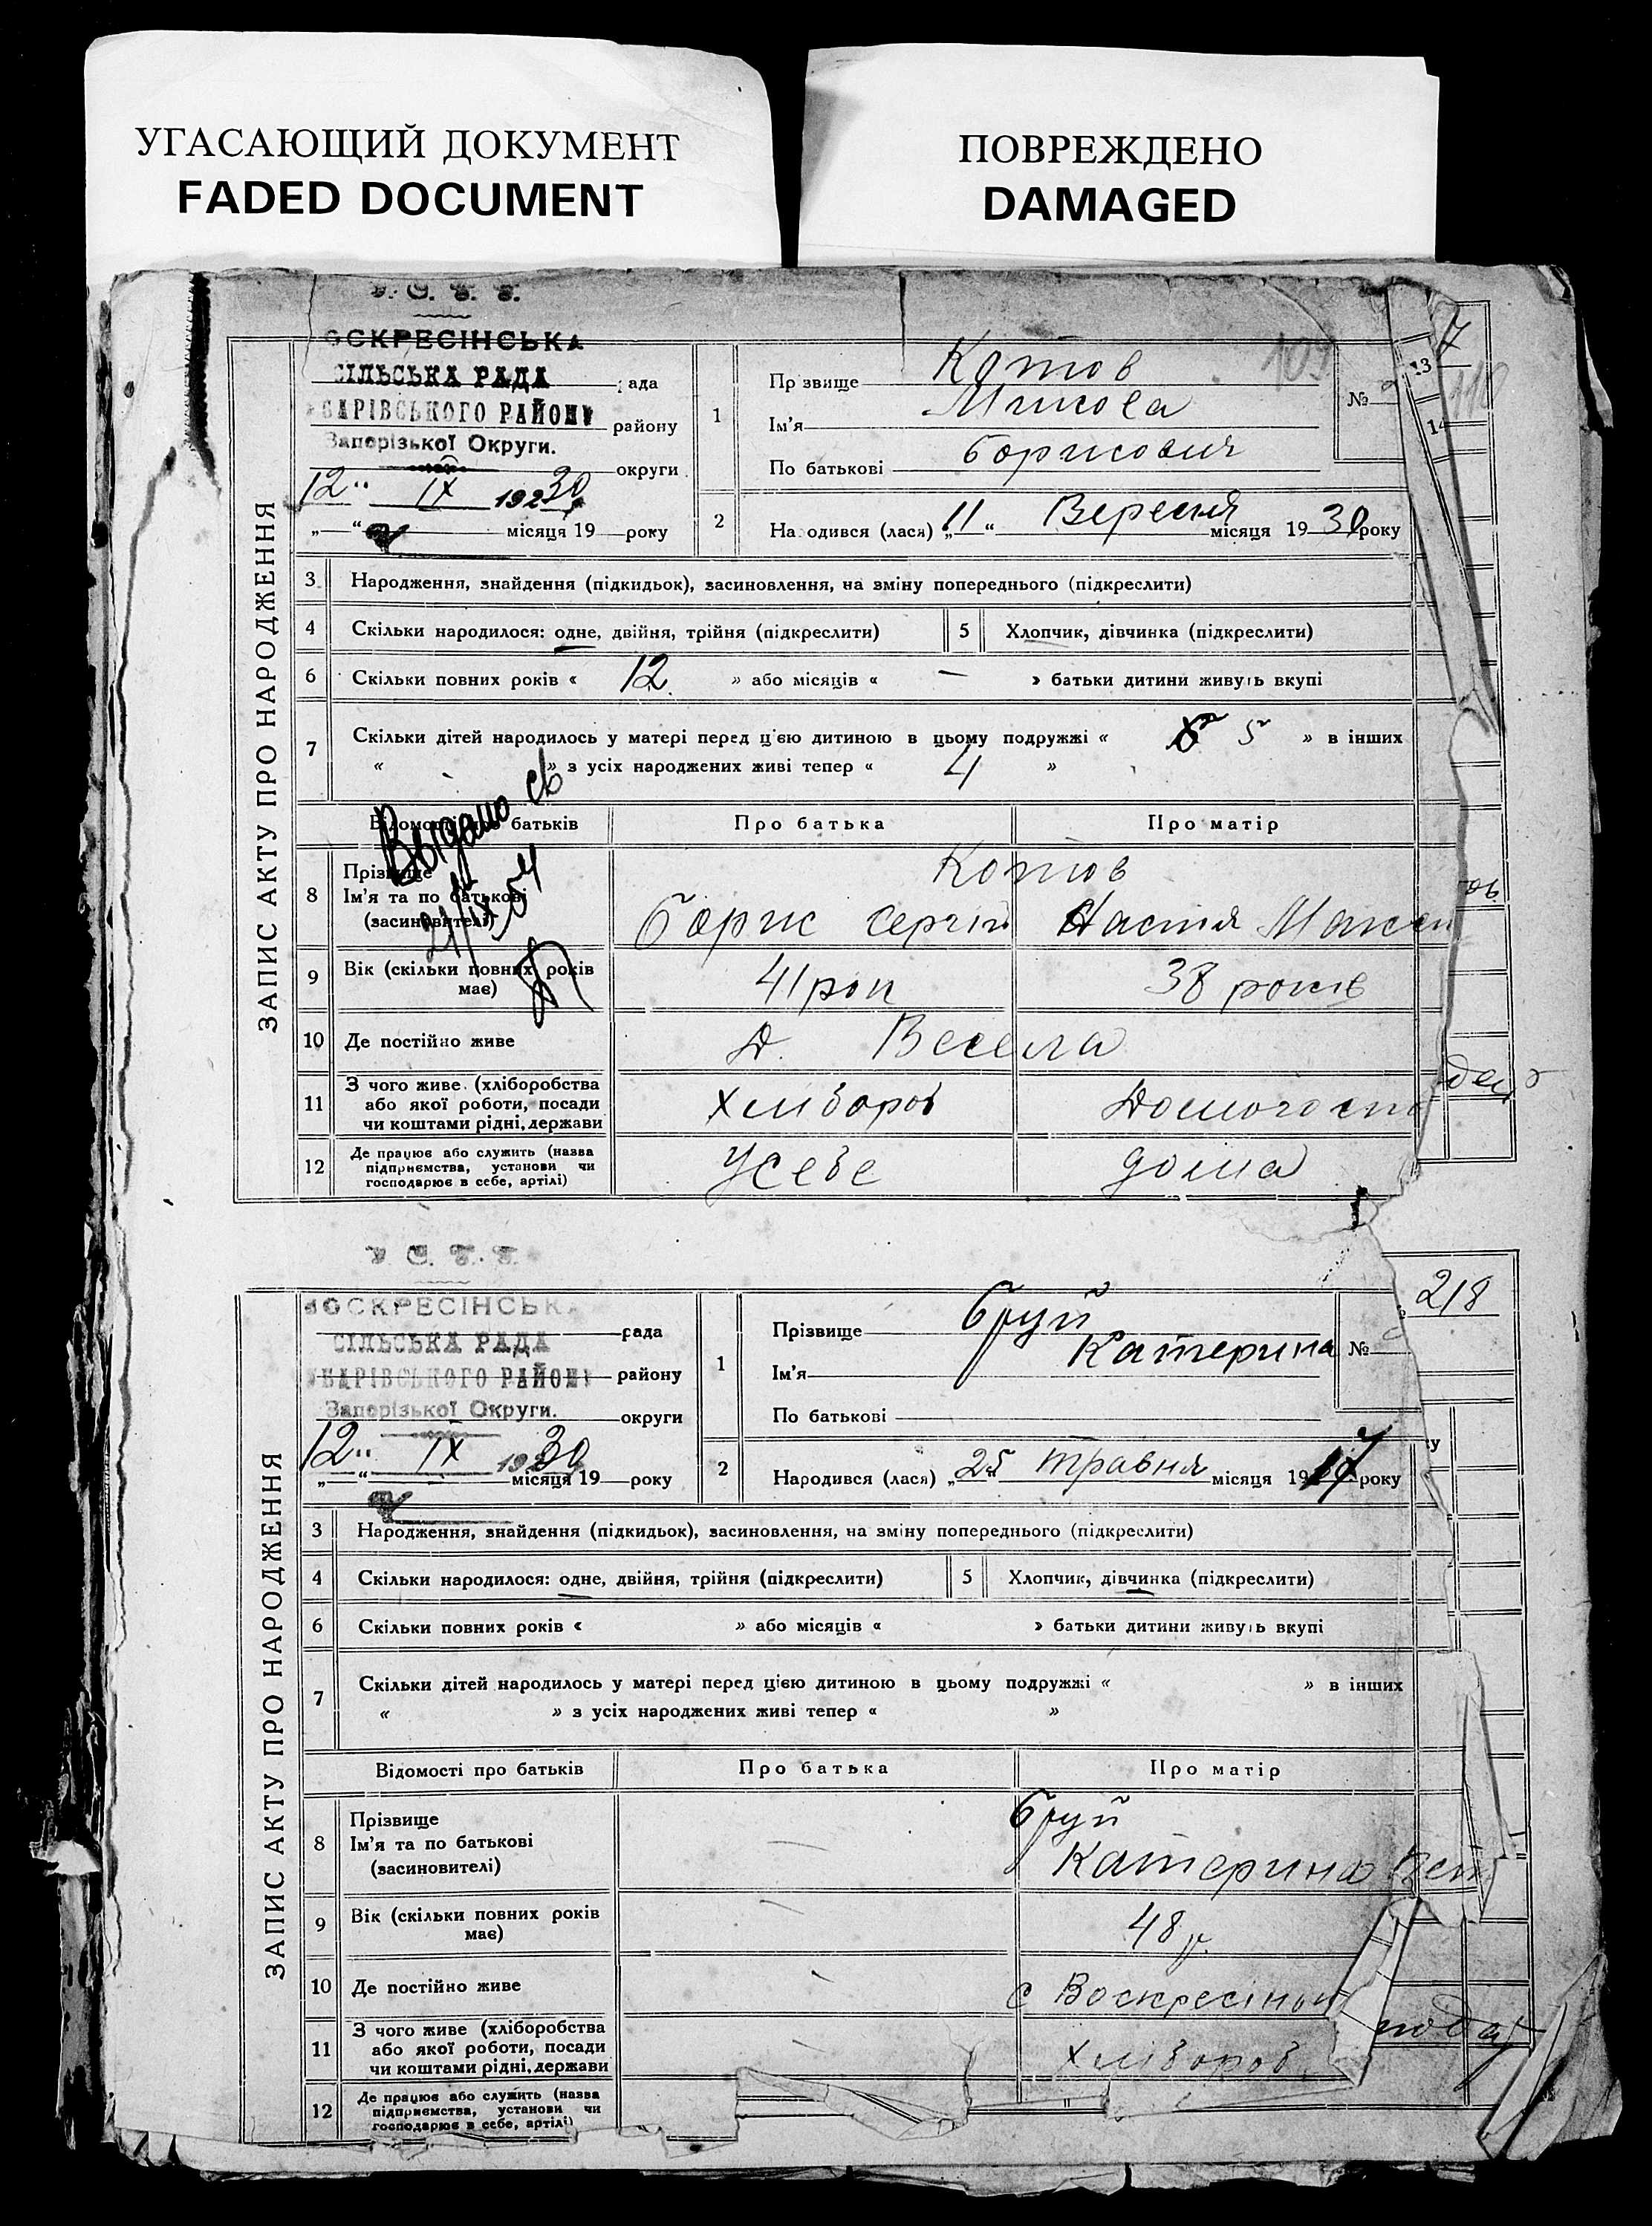 УГАСАЮЩИЙ ДОКУМЕНТ
FADED DOCUMENT
ПОВРЕЖДЕНО
DAMAGED
ЗАПИС АКТУ ПРО НАРОДЖЕННЯ
ОСКРЕСІНСЬКА
СІЛЬСЬКА РАДА ада
АРІВСЬКОГО РАЙОНУ району
Запорізької Округи.
округи
12 " IX 1930
„ — “ місяця 19 — року
1 Пр звище Котов
Ім’я Микола
По батькові Борисович
№
109
13
14
7
2 На одився (лася) „11“ Вересня місяця 1930 року
3 Народження, знайдення (підкидьок), засиновлення, на зміну попереднього (підкреслити)
4 Скільки народилося: одне, двійня, трійня (підкреслити) 5 Хлопчик, дівчинка (підкреслити)
6 Скільки повних років « 12 » або місяців « — » батьки дитини живуть вкупі
7 Скільки дітей народилось у матері перед цією дитиною в цьому подружжі « 5 » в інших
« » з усіх народжених живі тепер « 4 »
Выдано св
21/IX 54
Відомості про батьків Про батька Про матір
8 Прізвище
Ім’я та по батькові
(засиновителі)
Котов
Борис Сергій Настя Макси
9 Вік (скільки повних років
має) 41 рок 38 років
10 Де постійно живе Д. Весела
11 З чого живе (хліборобства
або якої роботи, посади
чи коштами рідні, держави
Хлібороб Домогосп
12 Де працює або служить (назва
підприємства, установи чи
господарює в себе, артілі)
Усебе дома
ЗАПИС АКТУ ПРО НАРОДЖЕННЯ
ОСКРЕСІНСЬКА
СІЛЬСЬКА РАДА рада
АРІВСЬКОГО РАЙОНУ району
Запорізької Округи. округи
12 " IX 1930
„ — “ місяця 19 — року
1 Прізвище Бруй
Ім’я Катерина
По батькові
№ 218
2 Народився (лася) „25“ травня місяця 1917 року
3 Народження, знайдення (підкидьок), засиновлення, на зміну попереднього (підкреслити)
4 Скільки народилося: одне, двійня, трійня (підкреслити) 5 Хлопчик, дівчинка (підкреслити)
6 Скільки повних років « » або місяців « » батьки дитини живуть вкупі
7 Скільки дітей народилось у матері перед цією дитиною в цьому подружжі « » в інших
« » з усіх народжених живі тепер « »
Відомості про батьків Про батька Про матір
8 Прізвище
Ім’я та по батькові
(засиновителі)
Бруй
Катерина Пет
9 Вік (скільки повних років
має) 48 р.
10 Де постійно живе с Воскресіньк
11 З чого живе (хліборобства
або якої роботи, посади
чи коштами рідні, держави
Хлібороб
12 Де працює або служить (назва
підприємства, установи чи
господарює в себе, артілі)
"